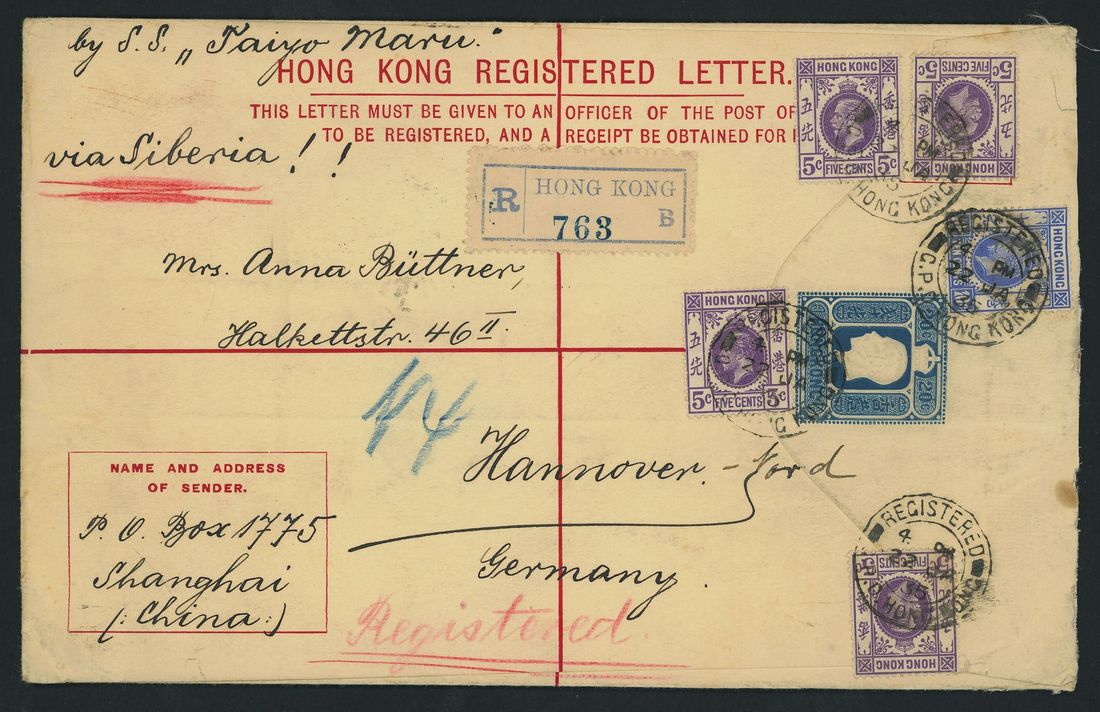 by S.S. „Taiyo Maru."
HONG KONG REGISTERED LETTER.
THIS LETTER MUST BE GIVEN TO AN OFFICER OF THE POST OF
TO BE REGISTERED, AND A RECEIPT BE OBTAINED FOR I
via Siberia!!
R HONG KONG
763 B
HONG KONG
香港
五先
5c FIVE CENTS 5c
HONG KONG
香港
五先
5c FIVE CENTS
HONG KONG
REGISTERED
4 PM
22 JA
35
G.P.O. HONG KONG
Mrs. Anna Büttner,
Halkettstr. 46 II.
HONG KONG
香港
五先
5c FIVE CENTS 5c
20c 20c
Hannover-Nord
Germany.
NAME AND ADDRESS
OF SENDER.
P. O. Box 1775
Shanghai
(: China :)
Registered.
REGISTERED
4 PM
22 JA
35
G.P.O. HONG KONG
5c FIVE CENTS
HONG KONG